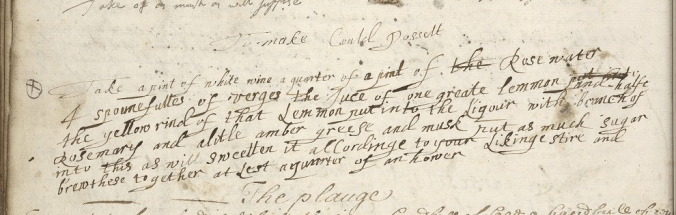 Take of as much as will suffise
To make Could Possett
Take a pint of white wine a quarter of a pint of the Rose water
4 spounefulles of verges the Juce of one greate lemmon and halfe
the yellow rind of that Lemmon put into the Liqour with a bunch of
Rosemary and a litle amber greese and musk put as much sugar
into this as will sweeten it allcordinge to your Likinge stire and
brew these together at Lest a quarter of an hower
The plauge